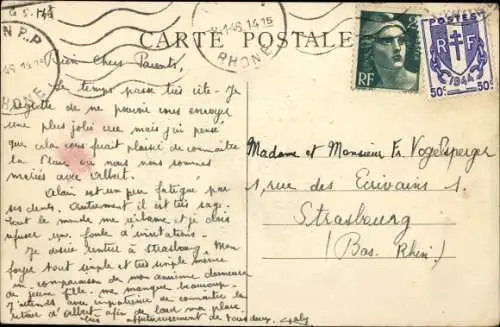 CARTE POSTALE
1-46 1415
RHONE
RF
POSTES
RF
1944
50c 50c
Bien Chers Parents,
Le temps passe très vite - Je
regrette de ne pouvoir vous envoyer
une plus jolie vue mais j'ai pensé
que cela vous ferait plaisir de connaître
la Place où nous nous sommes
mariés avec Albert.
Alain est un peu fatigué par
ses dents. Autrement il est très sage.
Tout le monde me et je dois
refuser une foule d'invitations.
Je désire rentrer à Strasbourg Mon
foyer tout simple et très simple même
en comparaison de mon ancienne demeure
de jeune fille, me manque beaucoup.
J'attends avec impatience de connaître la
d'Albert afin de
très affectueusement de vous deux.
Madame et Monsieur Fr. Vogelsperger
1, rue des Ecrivains 1.
Strasbourg
(Bas. Rhin)